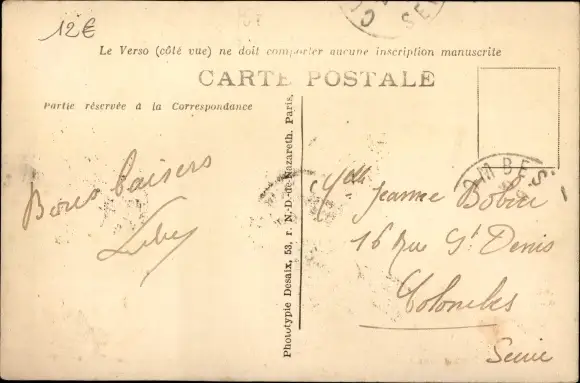 12€
Le Verso (côté vue) ne doit comporter aucune inscription manuscrite
CARTE POSTALE
Partie réservée à la Correspondance
Bons baisers
Phototypie Desaix, 53, r. N.-D.-de-Nazareth. Paris.
Mlle Jeanne
16 Rue St Denis
Colombes
Seine